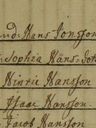 And. Hans Jonsson
Sophia Hans-dot
Hinric Hansson
Isaac Hansson
Jacob Hansson